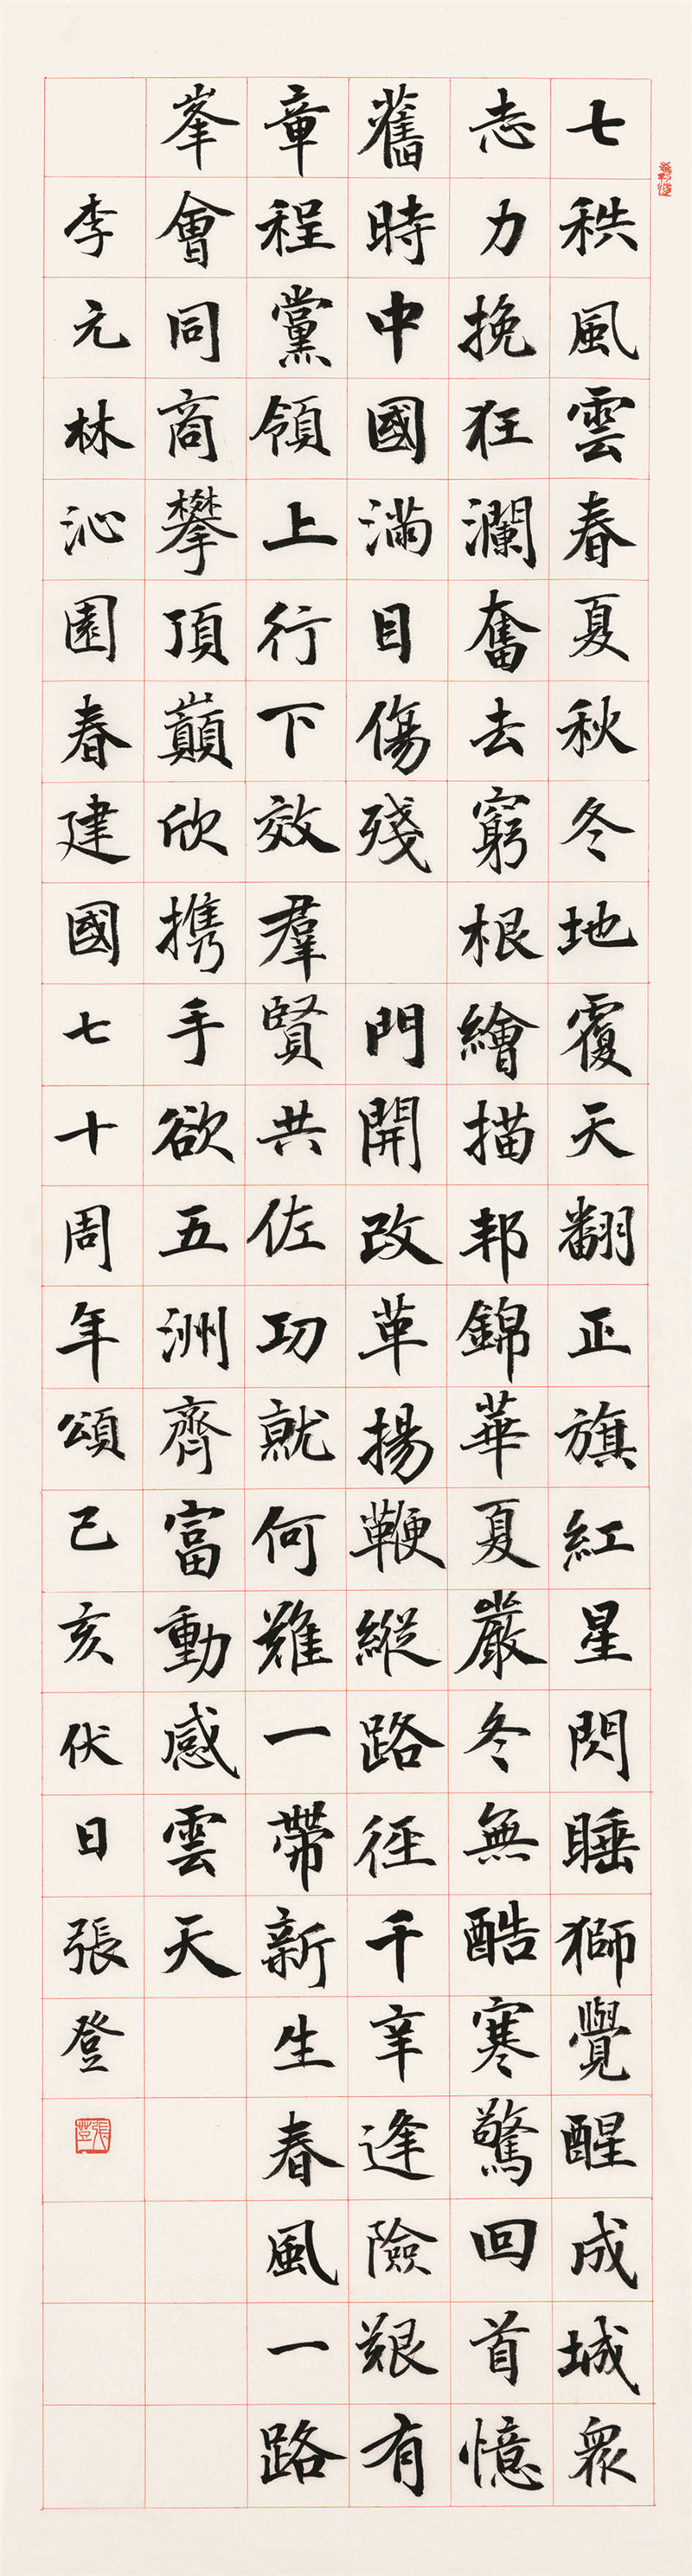 七秩風雲春夏秋冬地覆天翻正旗紅星閃睡獅覺醒成城衆
志力挽狂瀾奮去窮根繪描邦錦華夏嚴冬無酷寒驚回首憶
舊時中國滿目傷殘 門開改革揚鞭縱路徑千辛逢險艱有
章程黨領上行下效羣賢共佐功就何難一帶新生春風一路
峯會同商攀頂巔欣携手欲五洲齊富動感雲天
李元林沁園春建國七十周年頌己亥伏日張登
張登